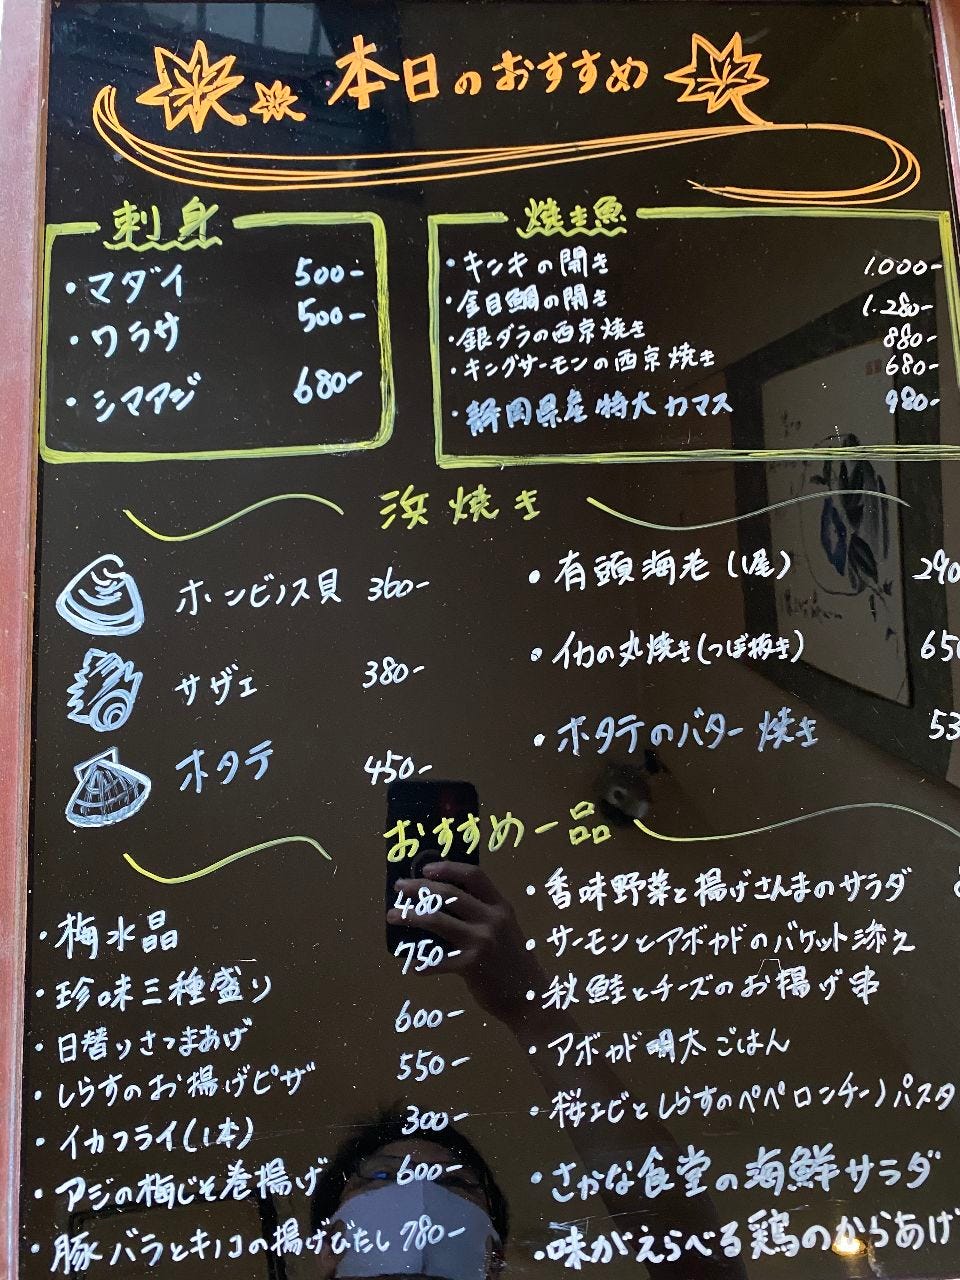 本日のおすすめ
刺身
・マダイ 500-
・ワラサ 500-
・シマアジ 680-
焼き魚
・キンキの開き 1.000-
・金目鯛の開き 1.280-
・銀ダラの西京焼き 880-
・キングサーモンの西京焼き 680-
・静岡県産特大カマス 980-
浜焼き
ホンビノス貝 360-
サザエ 380-
ホタテ 450-
・有頭海老(1尾) 290
・イカの丸焼き(つぼ抜き) 650
・ホタテのバター焼き 53
おすすめ一品
・梅水晶 480-
・珍味三種盛り 750-
・日替りさつまあげ 600-
・しらすのお揚げピザ 550-
・イカフライ(1本) 300-
・アジの梅じそ巻揚げ 600-
・豚バラとキノコの揚げびたし 780-
・香味野菜と揚げさんまのサラダ
・サーモンとアボカドのバケット添え
・秋鮭とチーズのお揚げ串
・アボカド明太ごはん
・桜エビとしらすのペペロンチーノパスタ
・さかな食堂の海鮮サラダ
・味がえらべる鶏のからあげ